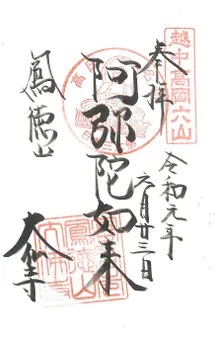 越中高岡六山
奉拝
令和元年
六月廿三日
阿弥陀如来
鳳徳山
大仏寺